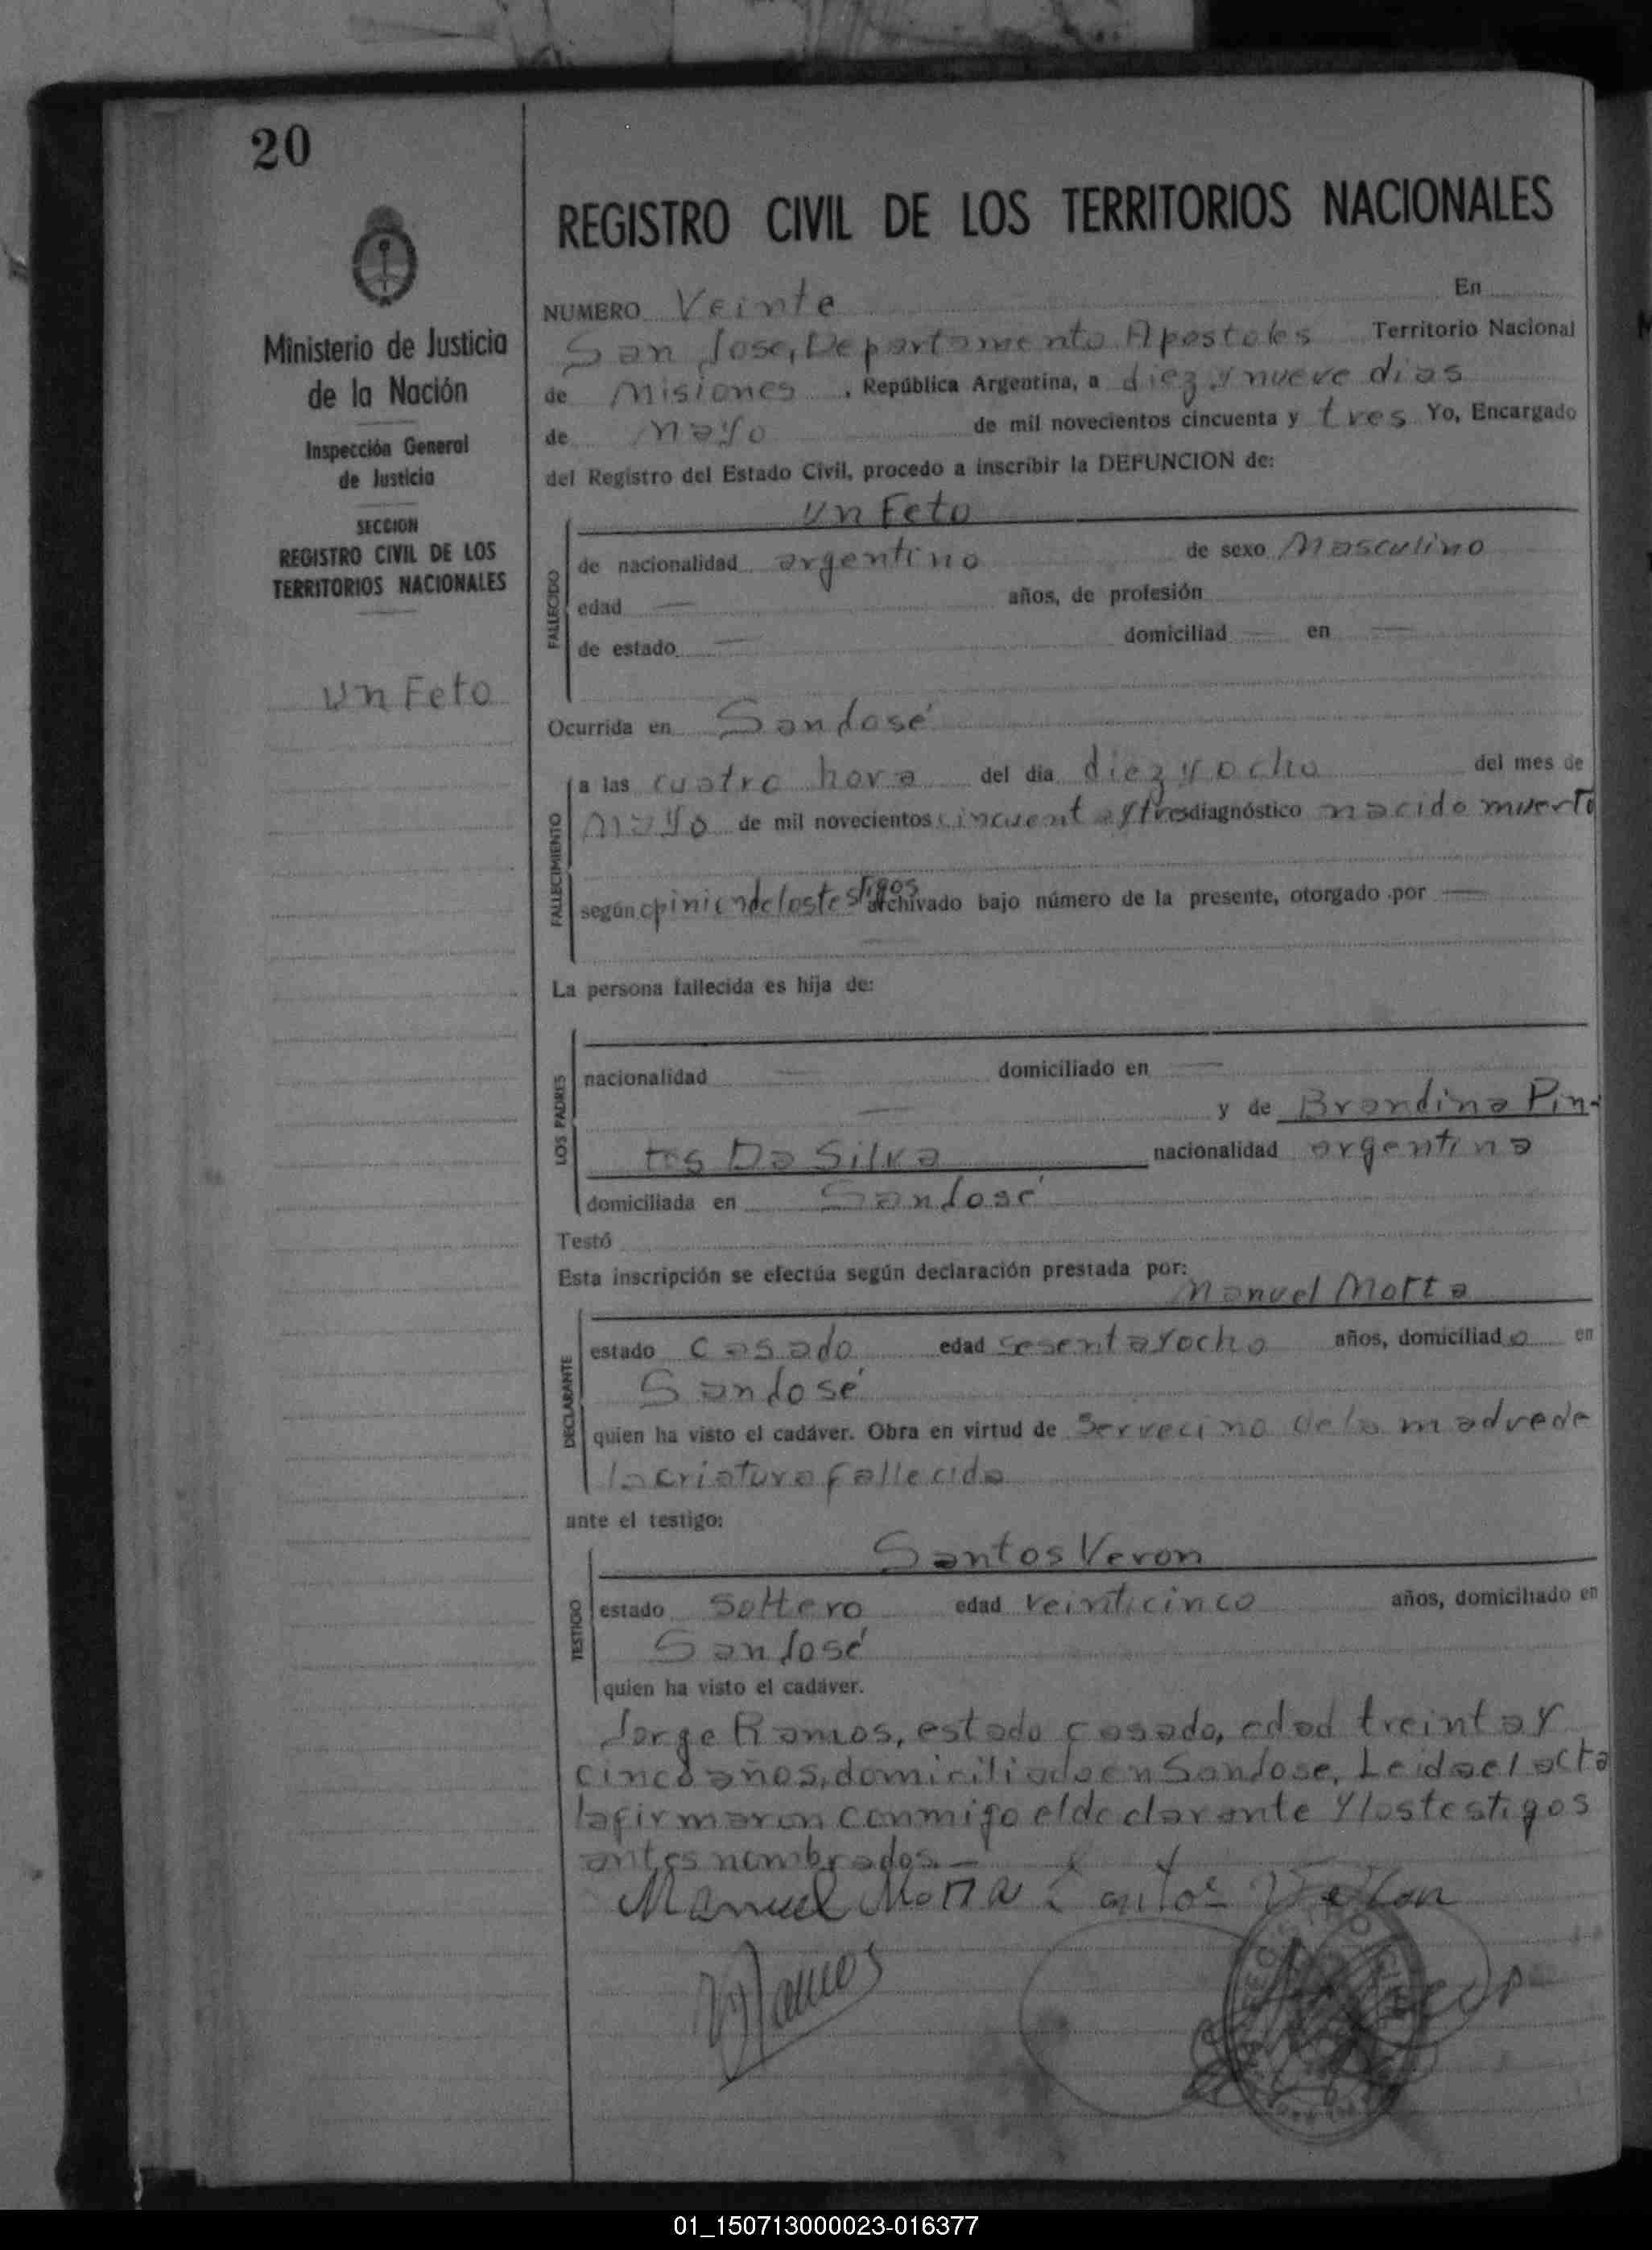 20
Ministerio de Justicia
de la Nación
Inspección General
de Justicia
SECCION
REGISTRO CIVIL DE LOS
TERRITORIOS NACIONALES
un Feto
REGISTRO CIVIL DE LOS TERRITORIOS NACIONALES
NUMERO Veinte En
San Jose, Departamento Apostoles Territorio Nacional
de Misiones, República Argentina, a diez y nueve dias
de Mayo de mil novecientos cincuenta y tres Yo, Encargado
del Registro del Estado Civil, procedo a inscribir la DEFUNCION de:
un Feto
FALLECIDO
de nacionalidad argentino de sexo Masculino
edad — años, de profesión
de estado — domiciliad — en —
Ocurrida en San José
FALLECIMIENTO
a las cuatro hora del dia diez y ocho del mes de
Mayo de mil novecientos cincuent ay tres diagnóstico nacido muerto
según opinion de los testigos archivado bajo número de la presente, otorgado por —
La persona fallecida es hija de:
LOS PADRES
nacionalidad — domiciliado en —
— y de Brandina Pin-
tos Da Silva nacionalidad argentina
domiciliada en San José
Testó
Esta inscripción se efectúa según declaración prestada por:
Manuel Motta
DECLARANTE
estado casado edad sesenta y ocho años, domiciliado en
San José
quien ha visto el cadáver. Obra en virtud de ser vecino de la madre de
la criatura fallecida
ante el testigo:
Santos Veron
TESTIGO
estado soltero edad veinticinco años, domiciliado en
San José
quien ha visto el cadáver.
Jorge Ramos, estado casado, edad treinta y
cinco años, domiciliado en San Jose. Leida el acta
la firmaron conmigo el declarante y los testigos
antes nombrados.—
Manuel Motta Santos Veron
Ramos
01_150713000023-016377